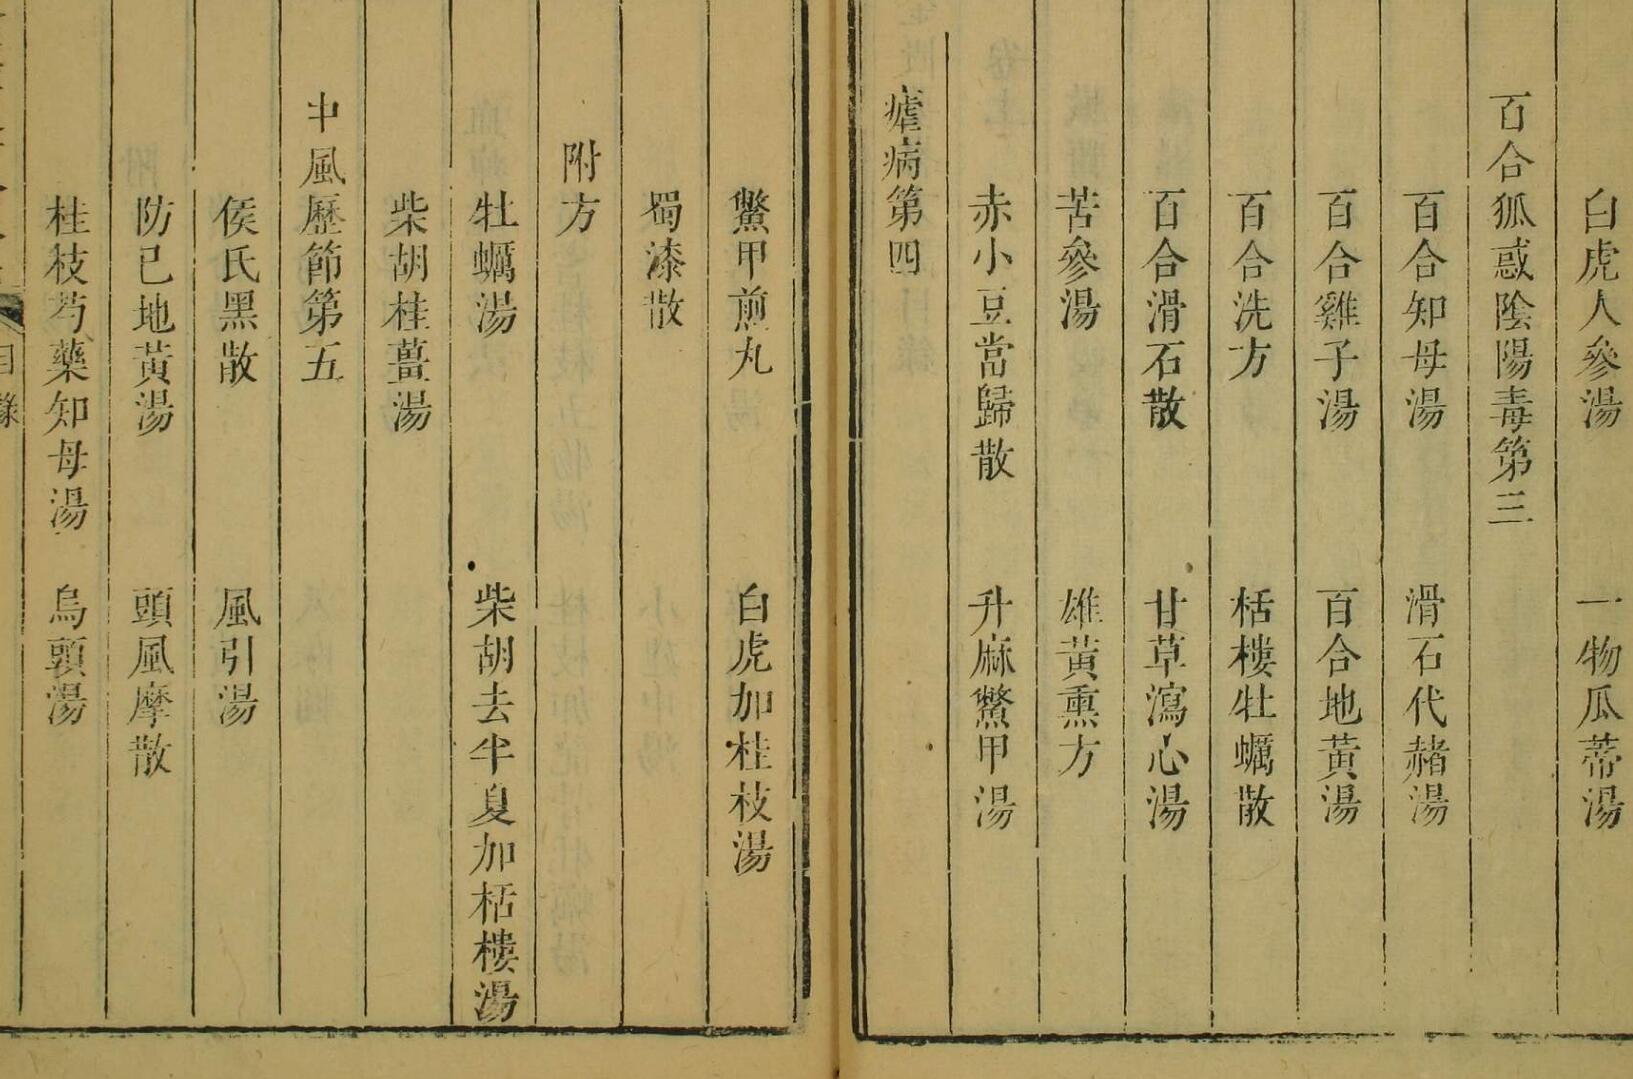 白虎人參湯　一物瓜蒂湯
百合狐惑陰陽毒第三
百合知母湯　滑石代赭湯
百合雞子湯　百合地黃湯
百合洗方　栝樓牡蠣散
百合滑石散　甘草瀉心湯
苦參湯　雄黃熏方
赤小豆當歸散　升麻鱉甲湯
瘧病第四
鱉甲煎丸　白虎加桂枝湯
蜀漆散
附方
牡蠣湯　柴胡去半夏加栝樓湯
柴胡桂薑湯
中風歷節第五
侯氏黑散　風引湯
防己地黃湯　頭風摩散
桂枝芍藥知母湯　烏頭湯
目錄